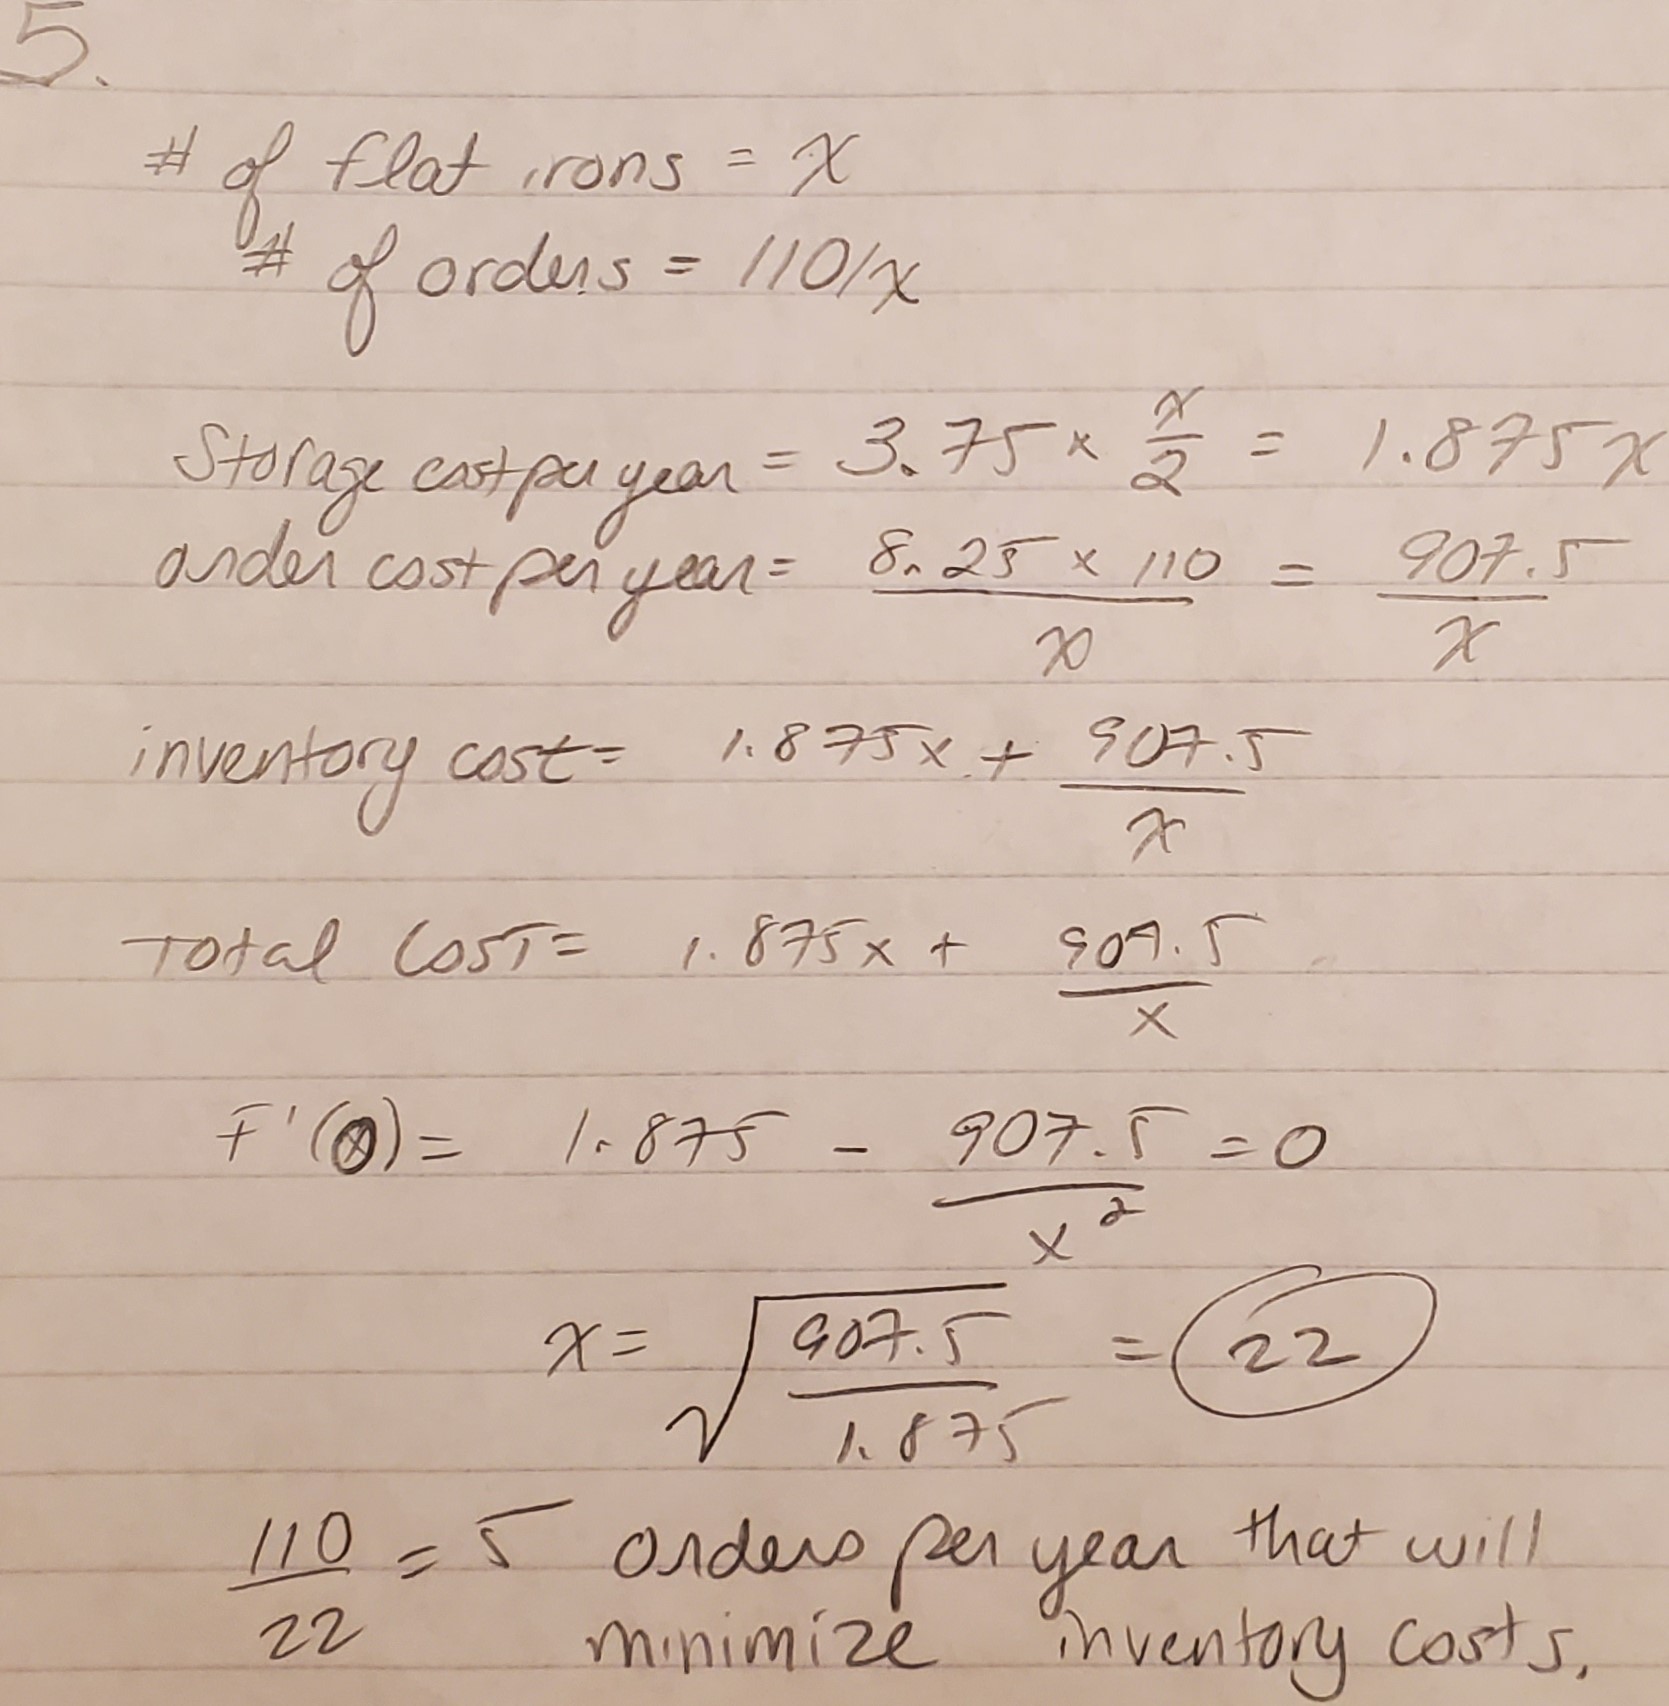 5.
# of flat irons = x
# of orders = 110/x
Storage cost per year = 3.75 × x/2 = 1.875x
order cost per year = 8.25 × 110 / x = 907.5 / x
inventory cost = 1.875x + 907.5 / x
Total Cost = 1.875x + 907.5 / x
F'(x) = 1.875 - 907.5 / x² = 0
x = √(907.5 / 1.875) = 22
110 / 22 = 5 orders per year that will
minimize inventory costs.